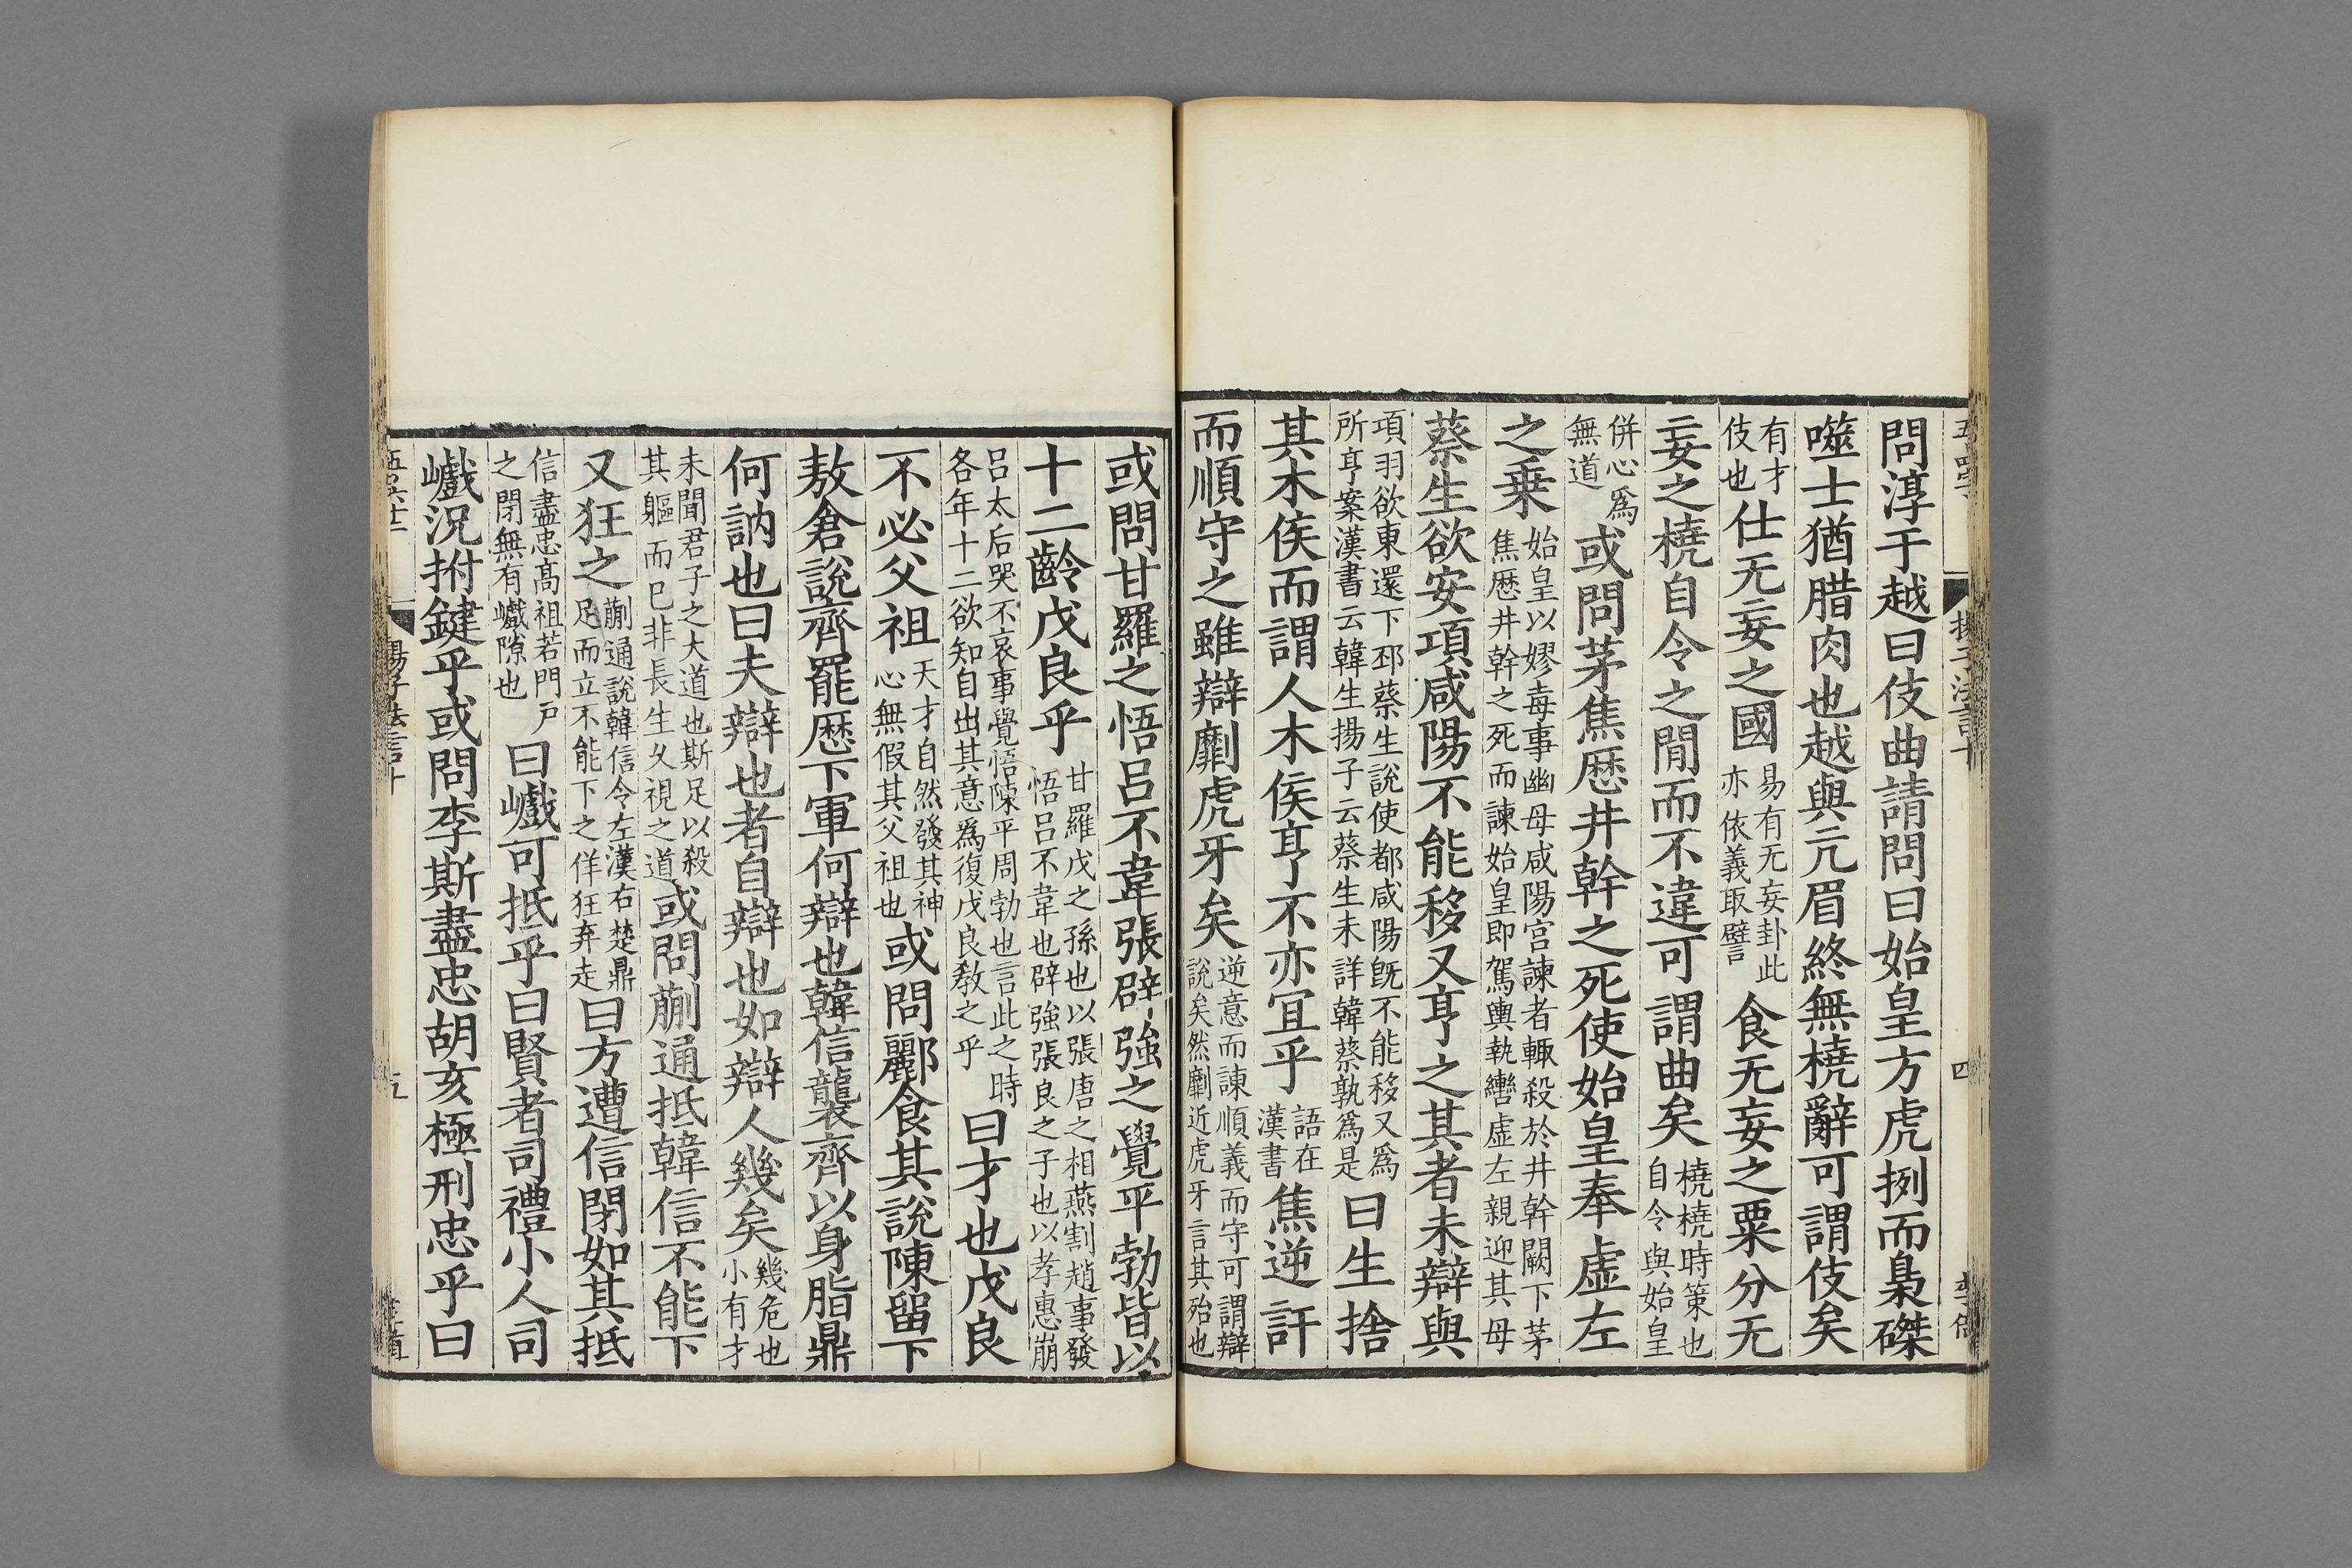 問淳于越曰伎曲請問曰始皇方虎捌而梟磔
噬士猶腊肉也越與亢眉終無撓辭可謂伎矣
有才伎也仕无妄之國易有无妄卦此亦依義取譬食无妄之粟分无
妄之撓自令之閒而不違可謂曲矣撓撓時策也自令與始皇
併心爲無道或問茅焦歷井幹之死使始皇奉虛左
之乗始皇以嫪毐事幽母咸陽宫諫者輙殺於井幹闕下茅焦歷井幹之死而諫始皇即駕輿執轡虛左親迎其母
蔡生欲安項咸陽不能移又亨之其者未辯與
項羽欲東還下邳蔡生説使都咸陽旣不能移又爲所亨案漢書云韓生揚子云蔡生未詳韓蔡孰爲是曰生捨
其木侯而謂人木侯亨不亦宜乎語在漢書焦逆訐
而順守之雖辯劘虎牙矣逆意而諫順義而守可謂辯説矣然劘近虎牙言其殆也
揚子法言十
四
或問甘羅之悟吕不韋張辟強之覺平勃皆以
十二齡戊良乎甘羅戊之孫也以張唐之相燕割趙事發悟吕不韋也辟強張良之子也以孝惠崩
吕太后哭不哀事覺悟陳平周勃也言此之時各年十二欲知自出其意爲復戊良敎之乎曰才也戊良
不必父祖天才自然發其神心無假其父祖也或問酈食其說陳留下
敖倉說齊罷歷下軍何辯也韓信襲齊以身脂鼎
何訥也曰夫辯也者自辯也如辯人幾矣幾危也小有才
未聞君子之大道也斯足以殺其軀而已非長生久視之道或問蒯通抵韓信不能下
又狂之蒯通説韓信令左漢右楚鼎足而立不能下之佯狂弃走曰方遭信閉如其抵
信盡忠髙祖若門戸之閉無有巇隙也曰巇可抵乎曰賢者司禮小人司
巇況拊鍵乎或問李斯盡忠胡亥極刑忠乎曰
揚子法言十
五